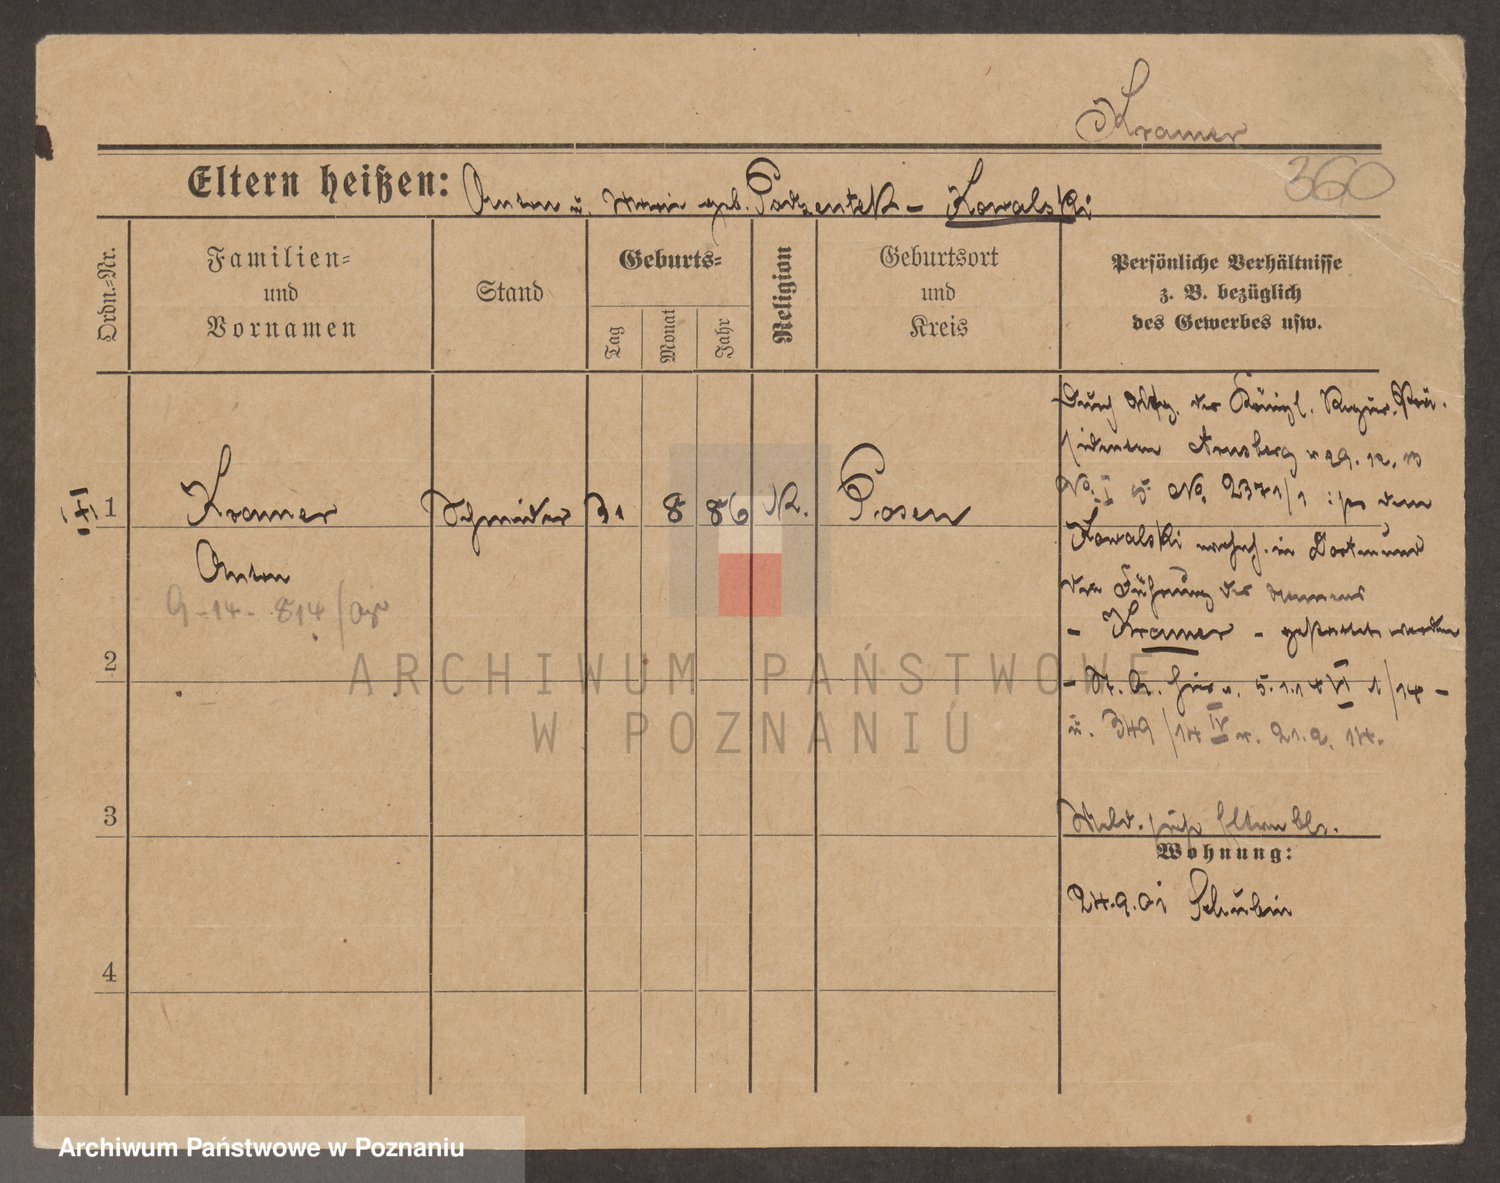 Kramer
360
Eltern heißen: Anton u. geb. Kowalski
Ordn.-Nr.
Familien-
und
Vornamen
Stand
Geburts-
Tag
Monat
Jahr
Religion
Geburtsort
und
Kreis
Persönliche Verhältnisse
z. B. bezüglich
des Gewerbes usw.
Durch Vfg. des Königl. Regier. Prä-
sidenten Arnsberg v. 29. 12. 13
No. I 5 No. 2371/1 ist dem
Kowalski wohnh. in Dortmund
die Führung des Namens
- Kramer - gestattet worden
1 Kramer Schneider 31 8 86 K. Posen
Anton
9-14-814/
2
5.1.14 VI 1/14 -
u. 349/14 IV v. 21.2.14.
3
Meld. siehe Elternbl.
Wohnung:
24.9.01 Schubin
4
ARCHIWUM PAŃSTWOWE
W POZNANIU
Archiwum Państwowe w Poznaniu